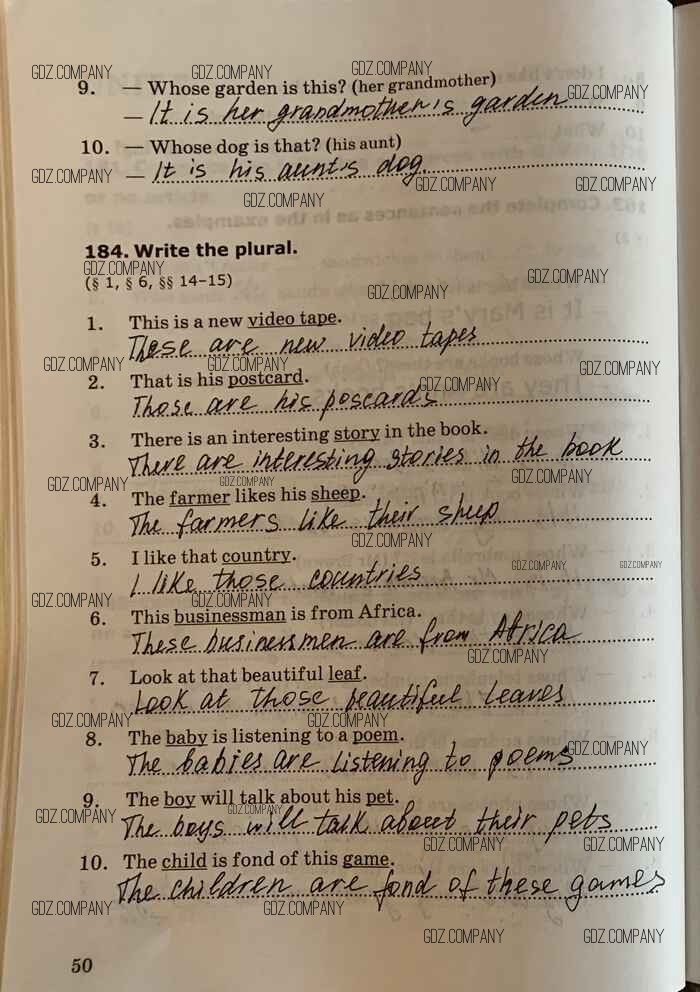 GDZ.COMPANY GDZ.COMPANY GDZ.COMPANY
9. — Whose garden is this? (her grandmother)
GDZ.COMPANY
— It is her grandmother's garden
10. — Whose dog is that? (his aunt)
GDZ.COMPANY — It is his aunt's dog. GDZ.COMPANY GDZ.COMPANY
GDZ.COMPANY
184. Write the plural.
GDZ.COMPANY GDZ.COMPANY
(§ 1, § 6, §§ 14–15)
GDZ.COMPANY
1. This is a new video tape.
These are new video tapes
GDZ.COMPANY GDZ.COMPANY GDZ.COMPANY
2. That is his postcard.
GDZ.COMPANY
Those are his poscards
3. There is an interesting story in the book.
There are interesting stories in the book
GDZ.COMPANY GDZ.COMPANY GDZ.COMPANY
4. The farmer likes his sheep.
The farmers like their sheep
GDZ.COMPANY
5. I like that country.
GDZ.COMPANY GDZ.COMPANY
I like those countries
GDZ.COMPANY GDZ.COMPANY
6. This businessman is from Africa.
These businessmen are from Africa
GDZ.COMPANY
7. Look at that beautiful leaf.
Look at those beautiful leaves
GDZ.COMPANY GDZ.COMPANY
8. The baby is listening to a poem.
GDZ.COMPANY
The babies are listening to poems
9. The boy will talk about his pet.
GDZ.COMPANY GDZ.COMPANY
The boys will talk about their pets
GDZ.COMPANY GDZ.COMPANY
10. The child is fond of this game.
The children are fond of these games
GDZ.COMPANY GDZ.COMPANY
GDZ.COMPANY GDZ.COMPANY
50